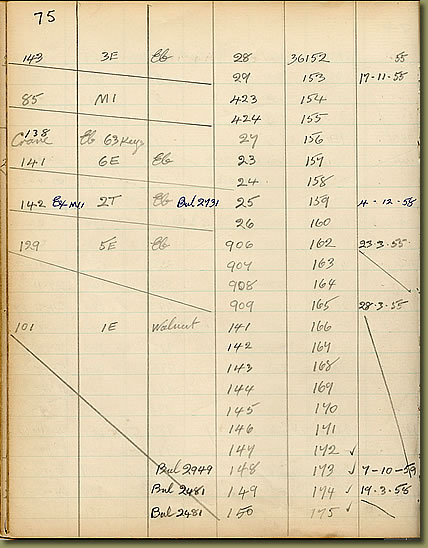 75
143 3E Eb 28 36152 55
29 153 17-11-55
85 M1 423 154
424 155
138
Crane Eb 63 Keys 27 156
141 6E Eb 23 157
24 158
142 Ex M11 2T Eb Bul 2931 25 159 4-12-58
26 160
129 5E Eb 906 162 23.3.55
907 163
908 164
909 165 28.3.55
101 1E Walnut 141 166
142 167
143 168
144 169
145 170
146 171
147 172 ✓
Bul 2949 148 173 ✓ 7-10-58
Bul 2481 149 174 ✓ 19.3.58
Bul 2481 150 175 ✓